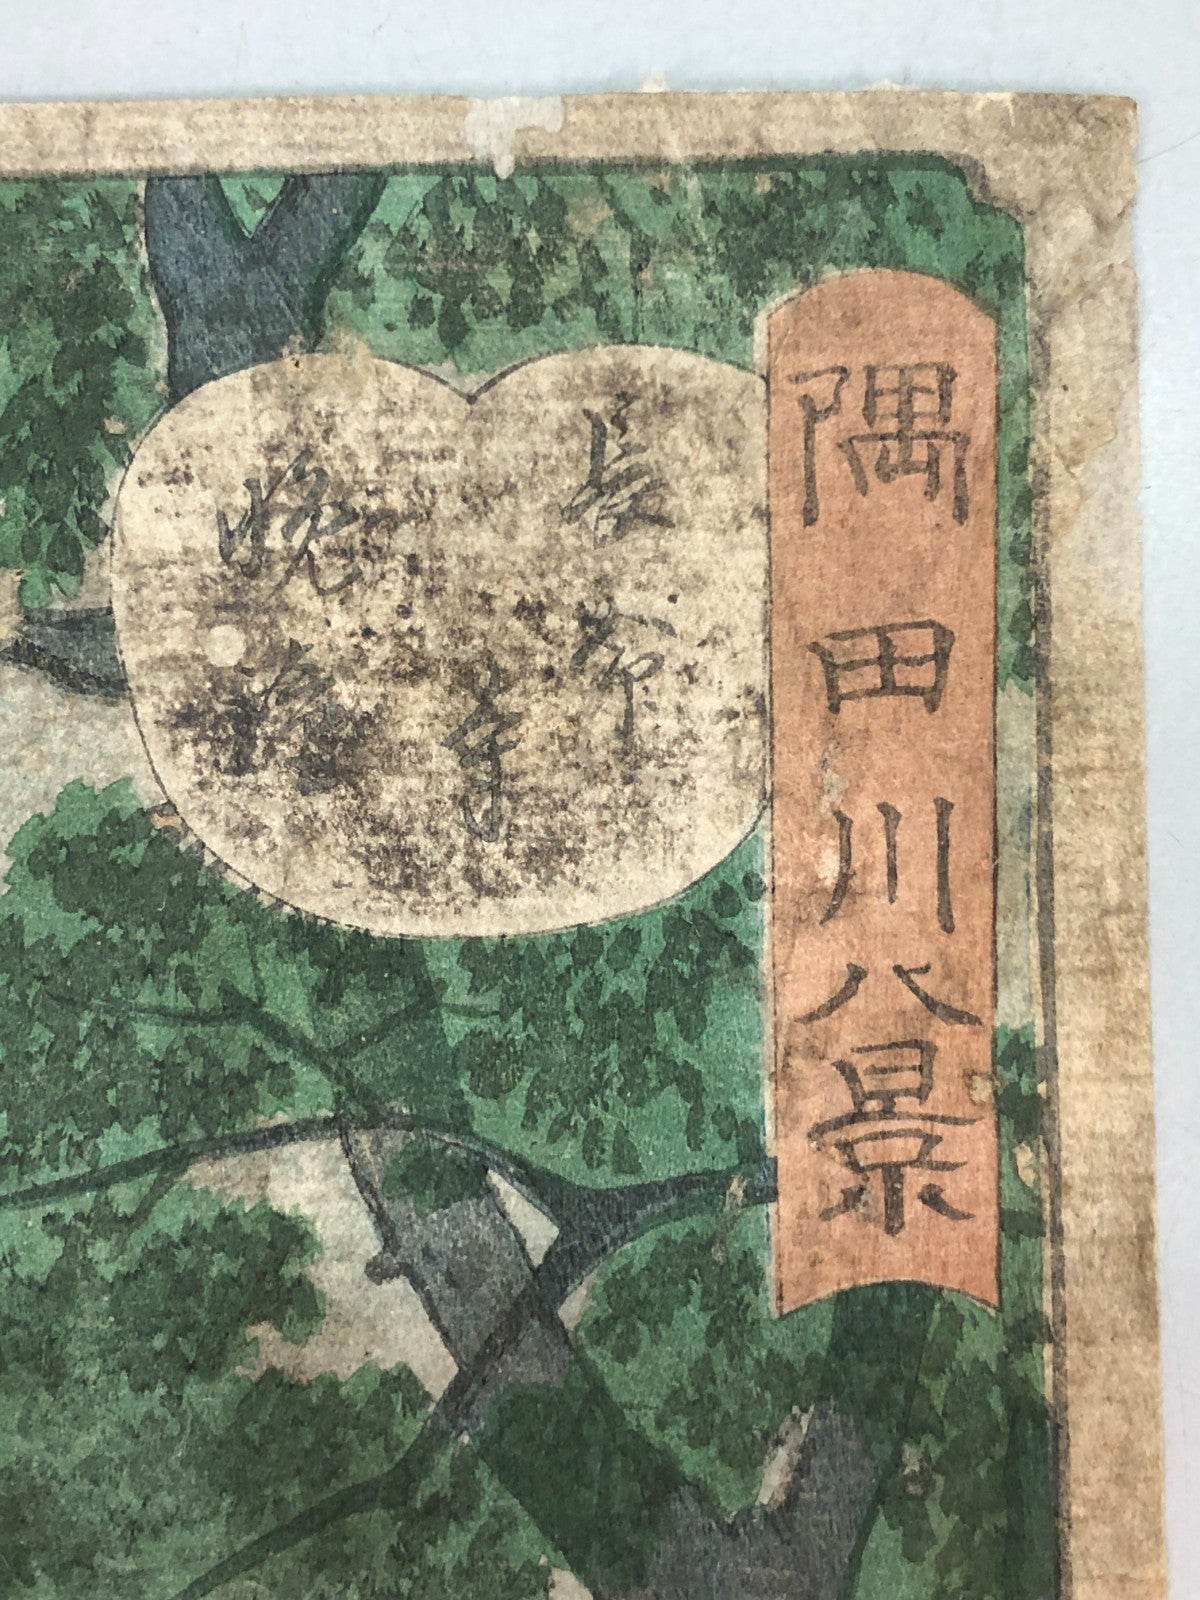 隅田川八景
長命
寺
晩鐘